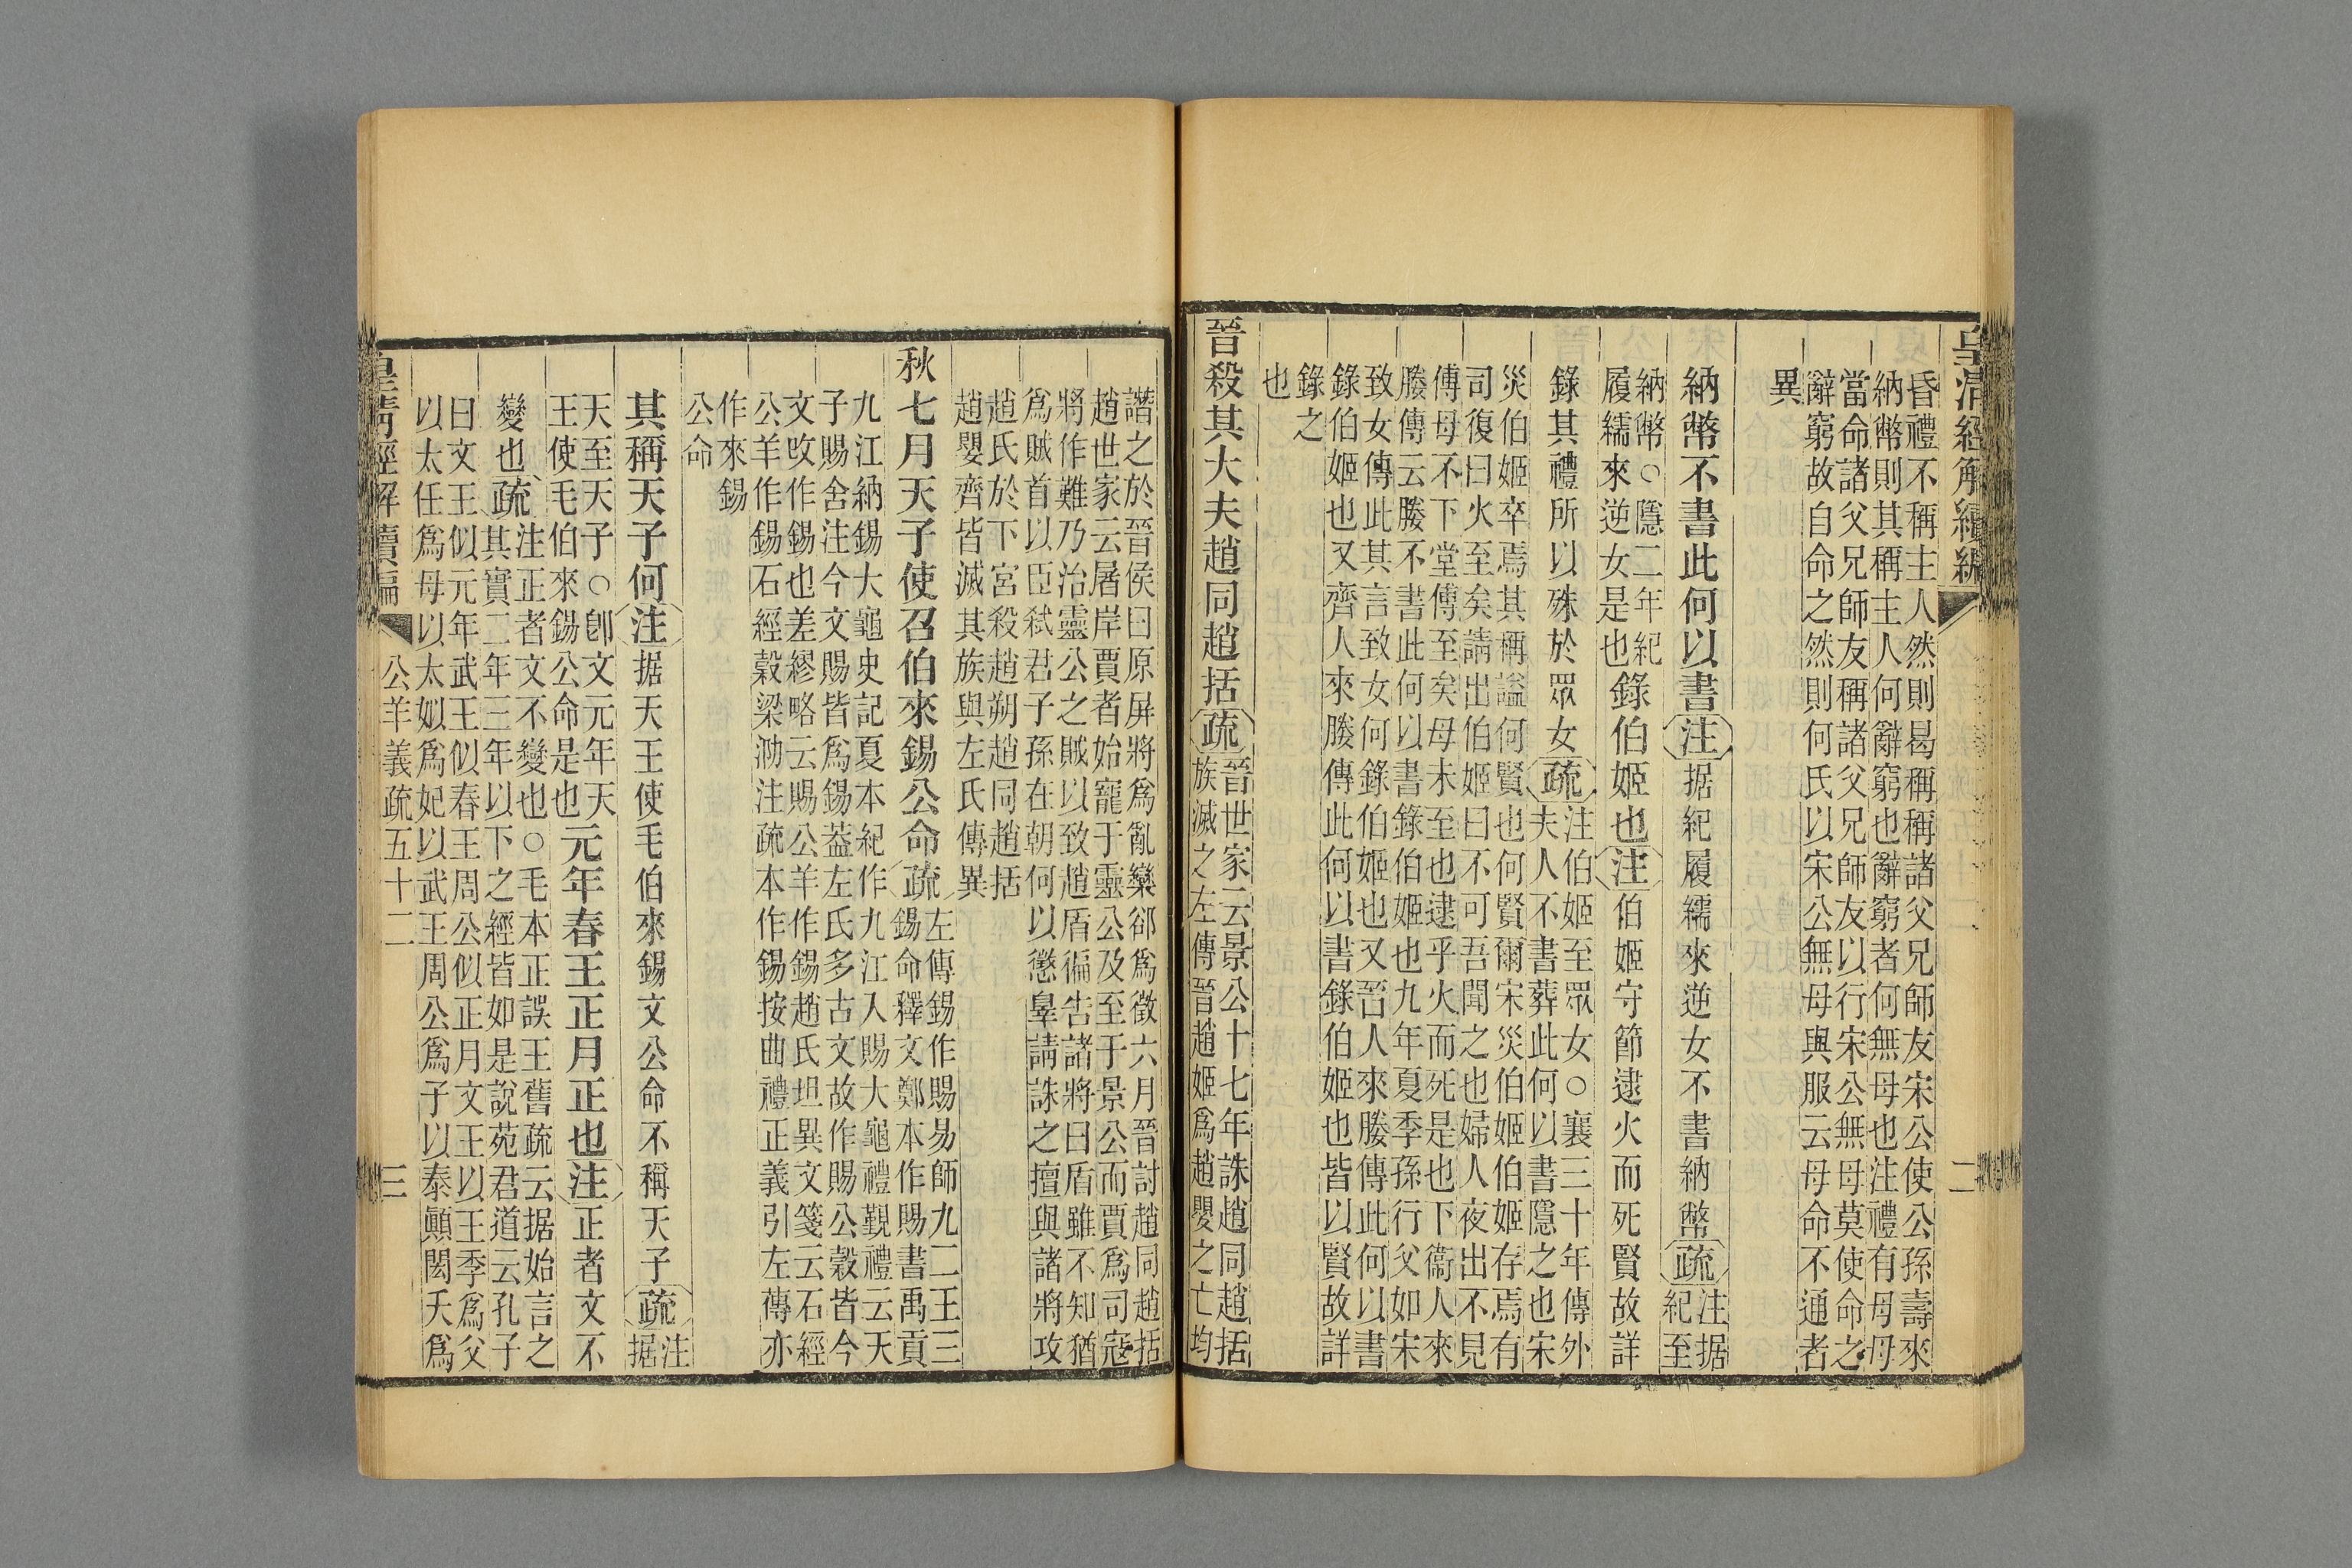 皇清經解續編
二
昏禮不稱主人然則曷稱稱諸父兄師友宋公使公孫壽來
納幣則其稱主人何辭窮也辭窮者何無母也注禮有母母
當命諸父兄師友稱諸父兄師友以行宋公無母莫使命之
辭窮故自命之然則何氏以宋公無母與服云母命不通者
異
納幣不書此何以書注据紀履繻來逆女不書納幣疏注据
紀至
納幣○隱二年紀
履繻來逆女是也錄伯姬也注伯姬守節逮火而死賢故詳
錄其禮所以殊於眾女疏注伯姬至眾女○襄三十年傳外
夫人不書葬此何以書隱之也宋
災伯姬卒焉其稱謚何賢也何賢爾宋災伯姬伯姬存焉有
司復曰火至矣請出伯姬曰不可吾聞之也婦人夜出不見
傅母不下堂傅至矣母未至也逮乎火而死是也下衞人來
媵傳云媵不書此何以書錄伯姬也九年夏季孫行父如宋
致女傳此其言致女何錄伯姬也又晉人來媵傳此何以書
錄伯姬也又齊人來媵傳此何以書錄伯姬也皆以賢故詳
錄之
也
晉殺其大夫趙同趙括疏晉世家云景公十七年誅趙同趙括
族滅之左傳晉趙姬爲趙嬰之亡均
譖之於晉侯曰原屏將爲亂欒郤爲徵六月晉討趙同趙括
趙世家云屠岸賈者始寵于靈公及至于景公而賈爲司寇
將作難乃治靈公之賊以致趙盾徧告諸將曰盾雖不知猶
爲賊首以臣弒君子孫在朝何以懲辠請誅之擅與諸將攻
趙氏於下宮殺趙朔趙同趙括
趙嬰齊皆滅其族與左氏傳異
秋七月天子使召伯來錫公命疏左傳錫作賜易師九二王三
錫命釋文鄭本作賜書禹貢
九江納錫大龜史記夏本紀作九江入賜大龜禮覲禮云天
子賜舍注今文賜皆爲錫葢左氏多古文故作賜公穀皆今
文攺作錫也差繆略云賜公羊作錫趙氏坦異文箋云石經
公羊作錫石經穀梁泐注疏本作錫按曲禮正義引左傳亦
作來錫
公命
其稱天子何注据天王使毛伯來錫文公命不稱天子疏注
据
天至天子○卽文元年天
王使毛伯來錫公命是也元年春王正月正也注正者文不
變也疏注正者文不變也○毛本正誤王舊疏云据始言之
其實二年三年以下之經皆如是說苑君道云孔子
曰文王似元年武王似春王周公似正月文王以王季爲父
以太任爲母以太姒爲妃以武王周公爲子以泰顚閎夭爲
皇清經解續編
公羊義疏五十二
三